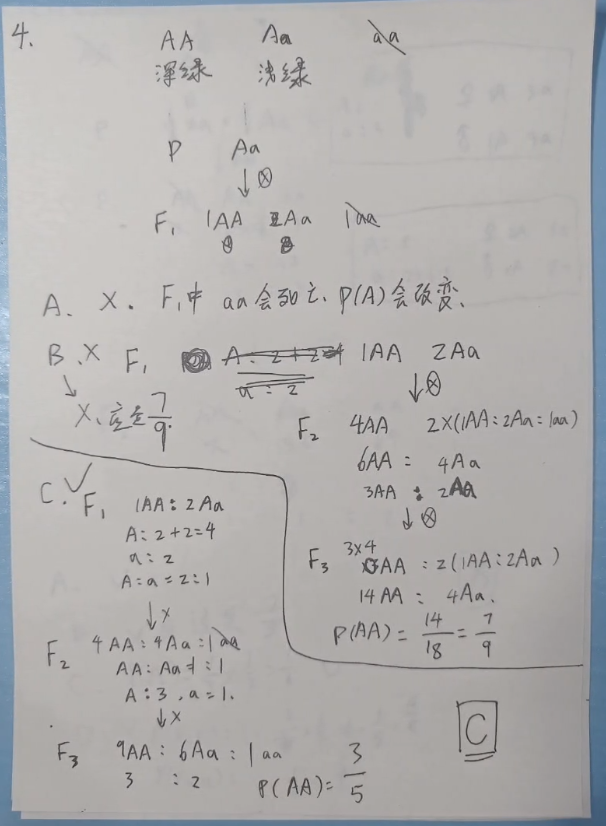 4.
AA Aa aa
深绿 浅绿
P Aa
↓⊗
F₁ 1AA 2Aa 1aa
A. X. F₁中 aa会死亡, P(A)会改变.
B. X F₁ A: 2+2=4 1AA 2Aa
a: 2
↓⊗
X, 应是 7/9.
F₂ 4AA 2×(1AA:2Aa:1aa)
6AA : 4Aa
3AA : 2Aa
↓⊗
F₃ 3×4AA : 2(1AA:2Aa)
14AA : 4Aa.
P(AA) = 14/18 = 7/9
C. ✓ F₁ 1AA : 2Aa
A: 2+2=4
a: 2
A:a=2:1
↓×
F₂ 4AA:4Aa:1aa
AA:Aa=1:1
A:3, a=1.
↓×
F₃ 9AA : 6Aa : 1aa
3 : 2 P(AA)= 3/5
C